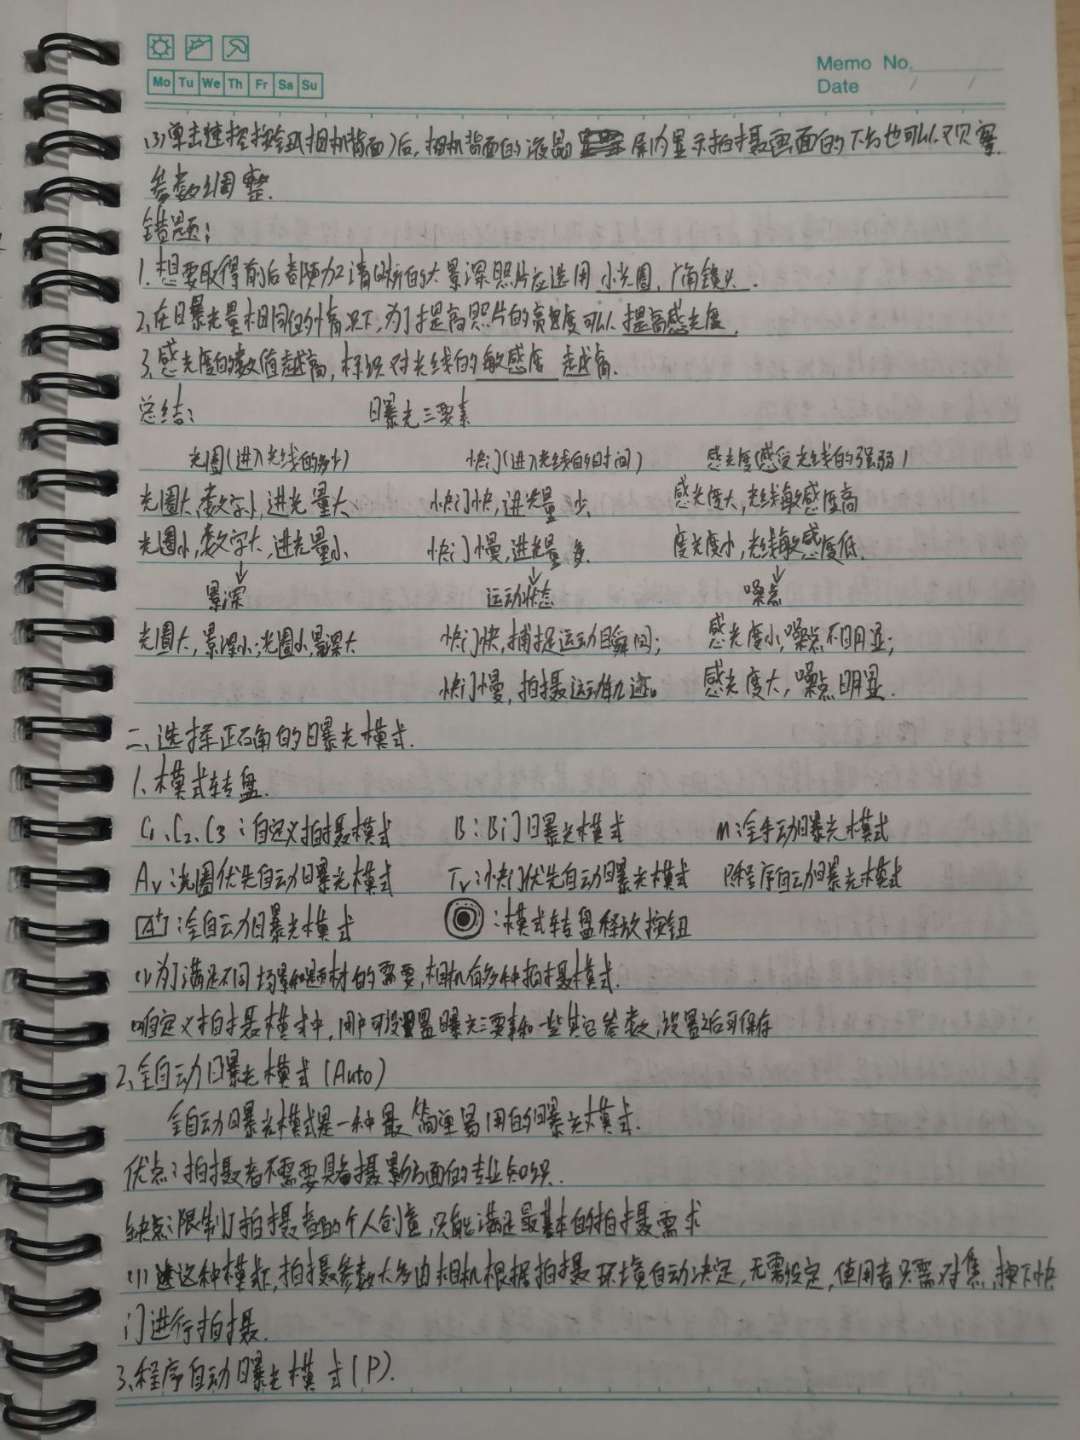 Memo No.
Mo Tu We Th Fr Sa Su
Date / /
(3)单击速控按钮(相机背面)后,相机背面的液晶屏内显示拍摄画面的下方也可以观察
参数调整.
错题:
1.想要取得前后都陕加清晰的大景深照片应选用 小光圈,广角镜头.
2.在曝光量相同的情况下,为了提高照片的亮度可以 提高感光度.
3.感光度的数值越高,标识对光线的 敏感度 越高.
总结: 曝光三要素
光圈(进入光线的多少) 快门(进入光线的时间) 感光度(感受光线的强弱)
光圈大,数字小,进光量大 快门快,进光量少 感光度大,光线敏感度高
光圈小,数字大,进光量小 快门慢,进光量多. 度光度小,光线敏感度低.
↓ ↓ ↓
景深 运动状态 噪点
光圈大,景深小;光圈小,景深大 快门快,捕捉运动瞬间; 感光度小,噪点不明显;
快门慢,拍摄运动轨迹。 感光度大,噪点明显.
二、选择正确的曝光模式.
1.模式转盘.
C1、C2、C3:自定义拍摄模式 B:B门曝光模式 M:全手动曝光模式
Av:光圈优先自动曝光模式 Tv:快门优先自动曝光模式 P程序自动曝光模式
A+:全自动曝光模式 :模式转盘释放按钮
(1)为了满足不同场景和题材的需要,相机有多种拍摄模式.
自定义拍摄模式中,用户可设置曝光三要素和一些其它参数,设置之后可保存
2、全自动曝光模式(Auto)
全自动曝光模式是一种最简单易用的曝光模式.
优点:拍摄者不需要具备摄影方面的专业知识.
缺点:限制了拍摄者的个人创意,只能满足最基本的拍摄需求
(1)这种模式,拍摄参数大多由相机根据拍摄环境自动决定,无需设定,使用者只需对焦,按下快
门进行拍摄.
3、程序自动曝光模式(P).